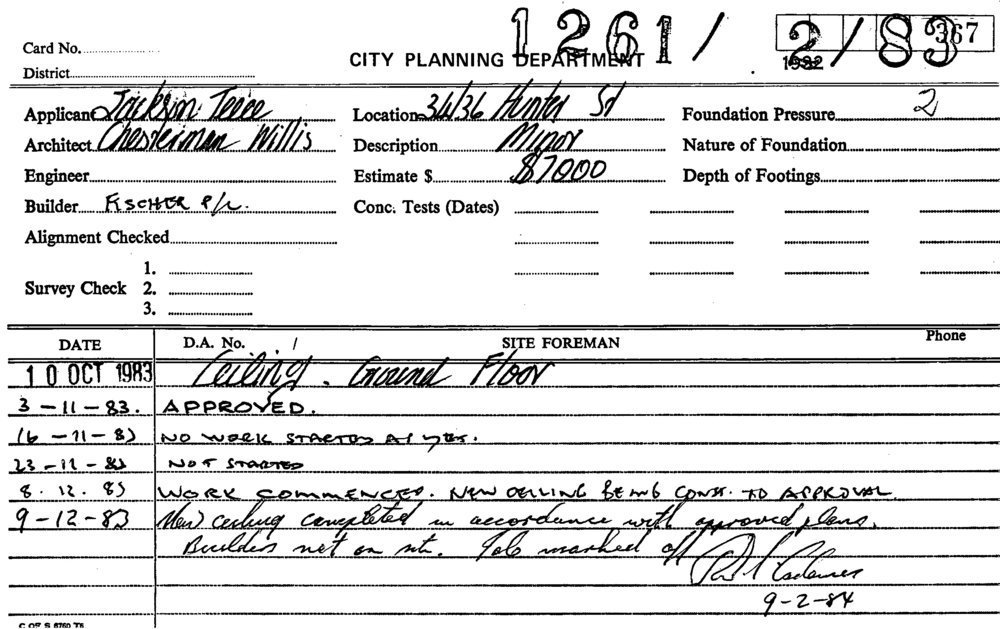 1261/2/83
367
1982
Card No.
CITY PLANNING DEPARTMENT
District
Applicant Jackson Teece Location 34/36 Hunter St Foundation Pressure 2
Architect Chesterman Willis Description Minor Nature of Foundation
Engineer Estimate $ $7000 Depth of Footings
Builder FISCHER P/L. Conc. Tests (Dates)
Alignment Checked
1.
Survey Check 2.
3.
DATE D.A. No. / SITE FOREMAN Phone
10 OCT 1983 Ceiling. Ground Floor
3-11-83. APPROVED.
16-11-83 NO WORK STARTED AS YET.
23-11-83 NOT STARTED
8.12.83 WORK COMMENCED. NEW CEILING BEING CONST. TO APPROVAL
9-12-83 New ceiling completed in accordance with approved plans.
Builders not on site. Job marked off
9-2-84
C OF S 6760 T6